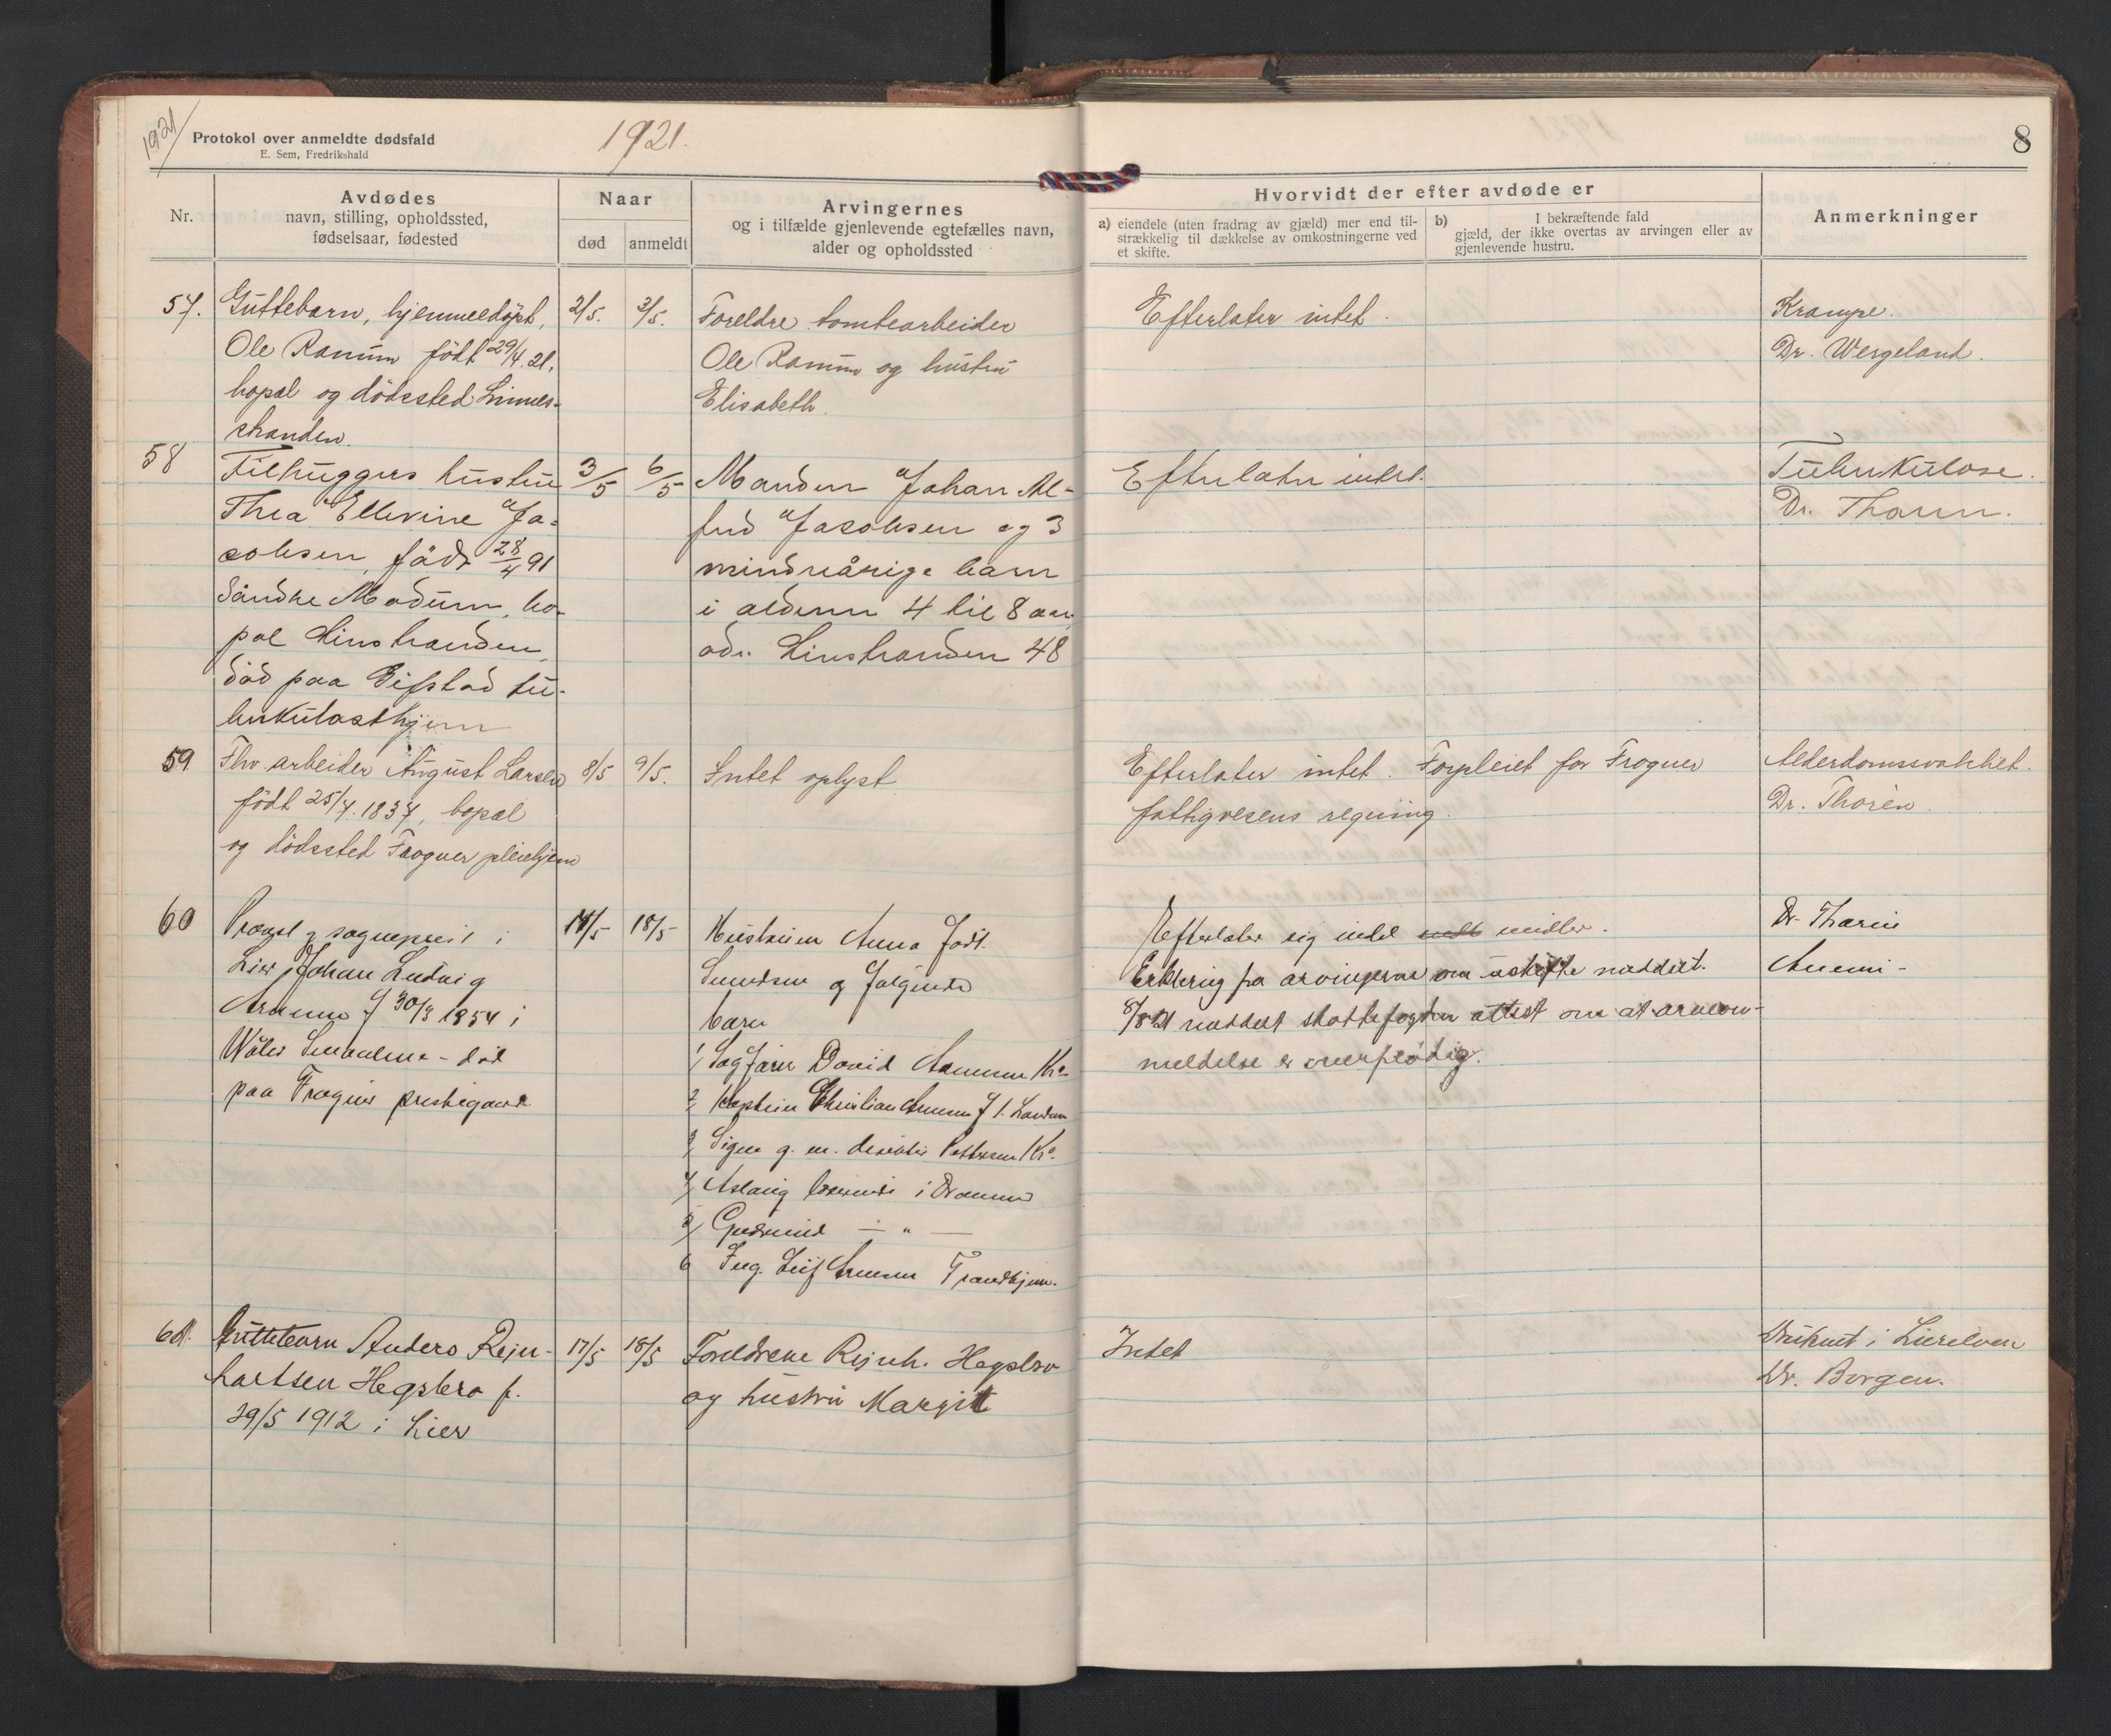 1921
Protokol over anmeldte dødsfald
E. Sem, Fredrikshald
1921.
8
Nr.
Avdødes
navn, stilling, opholdssted,
fødselsaar, fødested
Naar
død
anmeldt
Arvingernes
og i tilfælde gjenlevende egtefælles navn,
alder og opholdssted
Hvorvidt der efter avdøde er
a) eiendele (uten fradrag av gjæld) mer end til-
strækkelig til dækkelse av omkostningerne ved
et skifte.
b) I bekræftende fald
gjæld, der ikke overtas av arvingen eller av
gjenlevende hustru.
Anmerkninger
57.
Guttebarn, hjemmedöpt,
Ole Ranum født 29/4.21,
bopæl og dödssted Linnes-
stranden.
2/5.
3/5.
Foreldre tomtearbeider
Ole Ranum og hustru
Elisabeth.
Efterlater intet.
Krampe.
Dr. Wergeland.
58
Filhuggers hustru
Thea Ellevine Ja-
cobsen, född 28/4 91
Søndre Modum, bo-
pæl Linstranden,
død paa Eifstad tu-
berkulosehjem
3/5
6/5
Manden Johan Al-
fred Jacobsen og 3
mindreårige barn
i alderen 4 til 8 aar,
adr. Linstranden 48
Efterlater intet.
Tuberkulose.
Dr. Thoren.
59
Fhv. arbeider August Larsen
född 25/7.1837, bopæl
og dödssted Frogner pleiehjem
8/5
9/5.
Intet oplyst
Efterlater intet. Forpleiet for Frogner
fattigvesens regning.
Alderdomssvakhet.
Dr. Thorèn.
60
Provst og sogneprest i
Lier Johan Ludvig
Arnesen f 30/3 1854 i
Våler Smaalene - død
paa Frogner prestegaard
14/5
18/5
Hustruen Anna født
og følgende
barn
1/ Sagfører David Arnesen Kr.a
2/ Kaptein Christian Arnesen f. t. London
3/ Signe g. m. direktör Pettersen Kr.a
4/ Aslaug i Drammen
5/ Gudmund — " —
6 Ing. Leif Arnesen Trondhjem.
Efterlater sig intet midler.
Erklæring fra arvingerne om uskifte meddelt.
8/8 21 meddelt skattefogden attest om at arvean-
meldelse er overflødig.
Dr. Thorén
Anemi -
61.
Guttebarn Anders Rejn-
hartsen Hegsbro f.
29/5 1912 i Lier
17/5
18/5
Foreldrene Rejnh. Hegsbro
og hustru Margit
Intet
Druknet i Lierelven
Dr. Borgen.